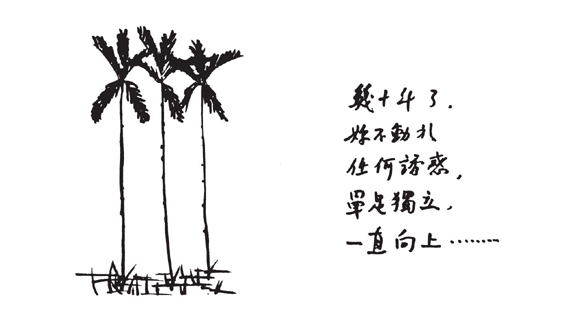 幾十年了，
妳不動於
任何誘惑，
單足獨立，
一直向上………